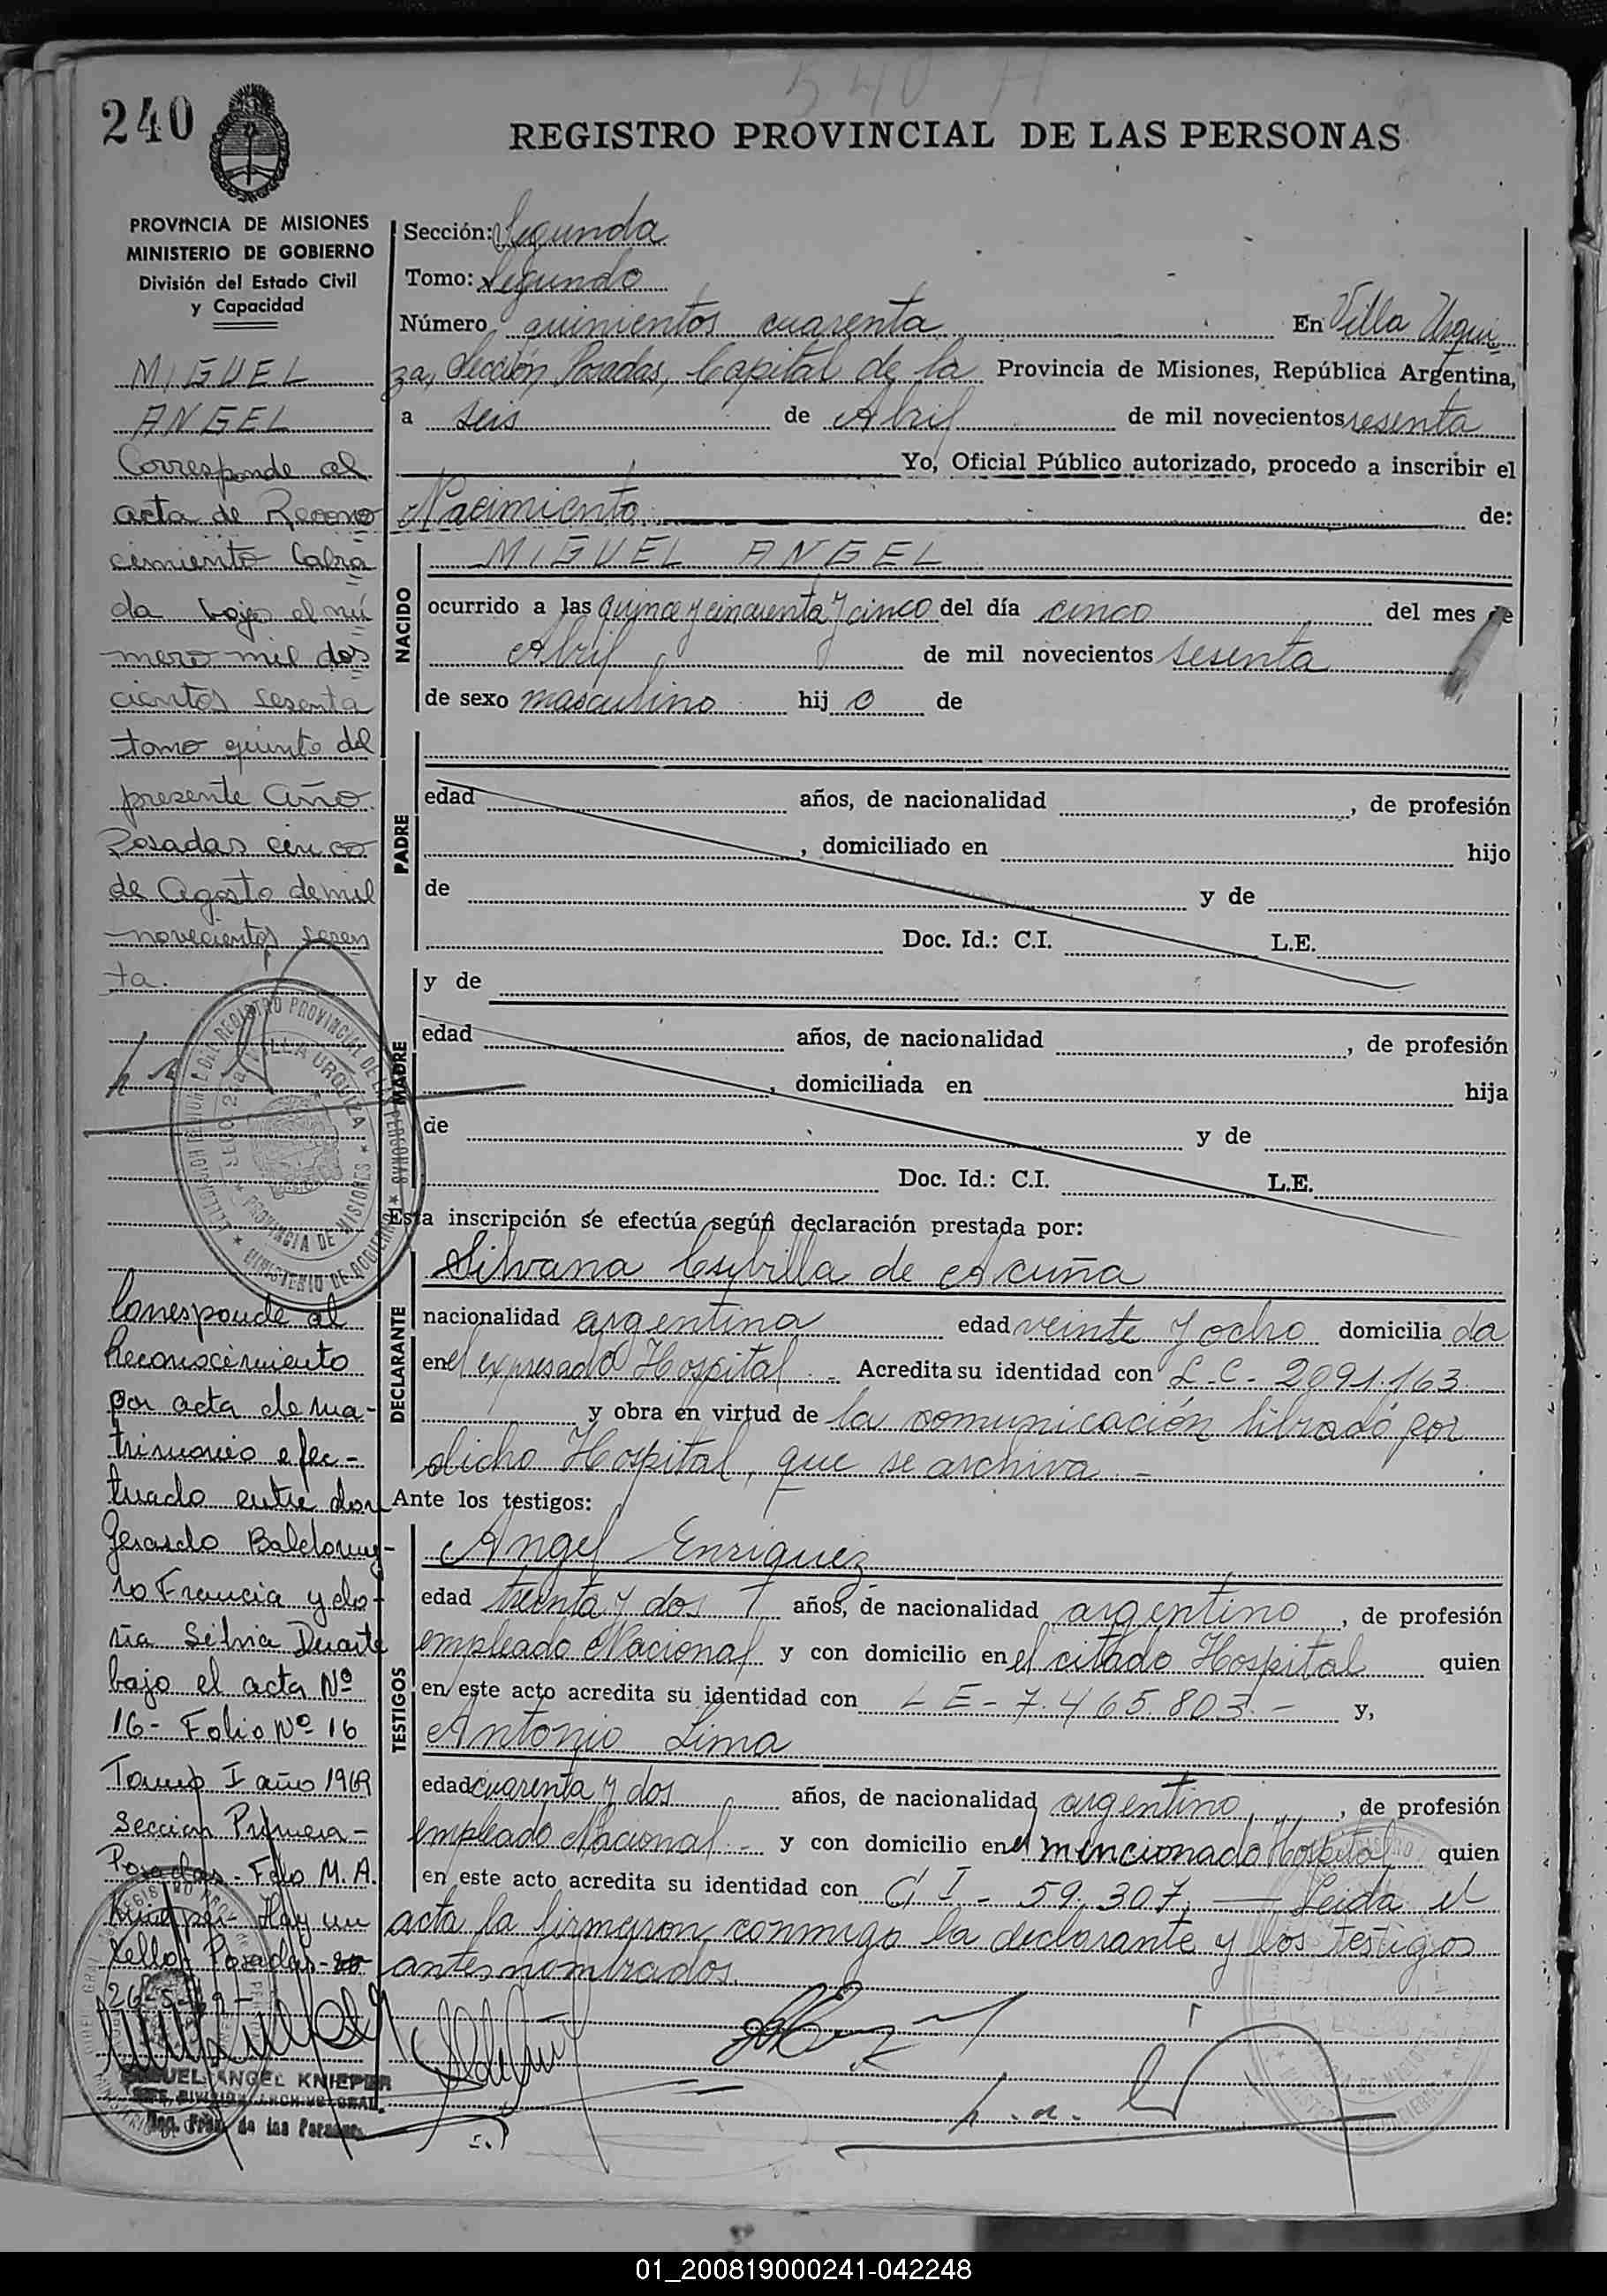 540 A
240
REGISTRO PROVINCIAL DE LAS PERSONAS
PROVINCIA DE MISIONES
MINISTERIO DE GOBIERNO
División del Estado Civil
y Capacidad
MIGUEL
ANGEL
Corresponde al
acta de Recono
cimiento labra
da bajo el nú
mero mil dos
cientos sesenta
tomo quinto del
presente año
Posadas cinco
de Agosto de mil
novecientos sesen
ta.
h a
Corresponde al
Reconocimiento
por acta de ma-
trimonio efec-
tuado entre don
Gerardo Baldome-
ro Francia y do-
ña Silvia Duarte
bajo el acta Nº
16- Folio Nº 16
Tomo I año 1969
Sección Primera-
Posadas- Fdo M. A.
Knieper- Hay un
sello- Posadas-
26-5-69-
MIGUEL ANGEL KNIEPER
JEFE DIVISION ARCHIVO GRAL.
Reg. Prov. de las Personas
Sección: Segunda
Tomo: Segundo
Número quinientos cuarenta En Villa Urqui
za, Sección, Posadas, Capital de la Provincia de Misiones, República Argentina,
a seis de Abril de mil novecientos sesenta
Yo, Oficial Público autorizado, procedo a inscribir el
Nacimiento de:
NACIDO
MIGUEL ANGEL
ocurrido a las quince y cincuenta y cinco del día cinco del mes de
Abril de mil novecientos sesenta
de sexo masculino hij o de
PADRE
edad años, de nacionalidad , de profesión
, domiciliado en hijo
de y de
Doc. Id.: C.I. L.E.
MADRE
y de
edad años, de nacionalidad , de profesión
, domiciliada en hija
de y de
Doc. Id.: C.I. L.E.
Esta inscripción se efectúa según declaración prestada por:
DECLARANTE
Silvana de Acuña
nacionalidad argentina edad veinte y ocho domicilia da
en el expresado Hospital - Acredita su identidad con L.C. - 2091.163
y obra en virtud de la comunicación librado por
dicho Hospital, que se archiva. -
Ante los testigos:
TESTIGOS
Angel Enriquez
edad treinta y dos años, de nacionalidad argentino , de profesión
empleado Nacional y con domicilio en el citado Hospital quien
en este acto acredita su identidad con L E - 7.465.803. - y,
Antonio Lima
edad cuarenta y dos años, de nacionalidad argentino , de profesión
empleado Nacional - y con domicilio en el mencionado Hospital quien
en este acto acredita su identidad con C I - 59.307. — Leida el
acta la firmaron conmigo la declarante y los testigos
antes nombrados.
h. a.
01_200819000241-042248